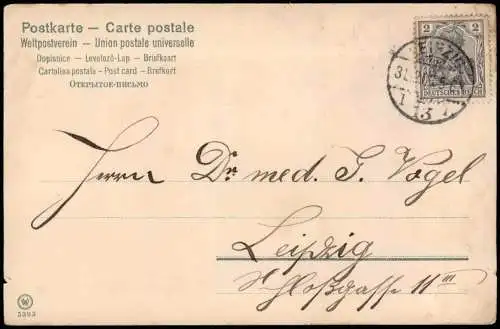 Postkarte — Carte postale
Weltpostverein — Union postale universelle
Dopisnice — Levelező-Lap — Briefkaart
Cartolina postale — Post card — Brefkort
Открытое-письмо
2
DEUTSCHES REICH
LEIPZIG
31.
13
Herrn Dr. med. G. Vogel
Leipzig
Schloßgasse 11 III
5393